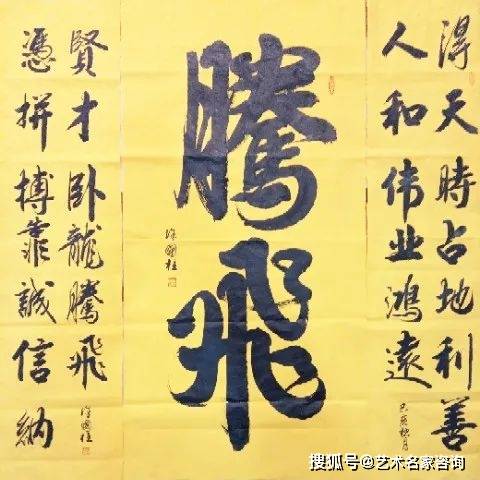 得天時占地利善
人和伟业鸿遠
己亥秋月
騰飛
憑拼搏靠誠信納
賢才卧龍騰飛
搜狐号@艺术名家咨询